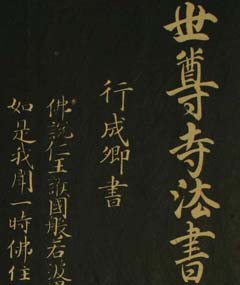 世尊寺法書
行成卿書
佛説仁王護國般若波
如是我聞一時佛住